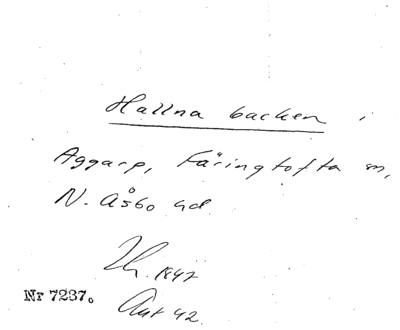 Hallna backen i
Aggarp, Färingtofta sn,
N. Åsbo hd.
1847
Nr 7237.
Ant 42